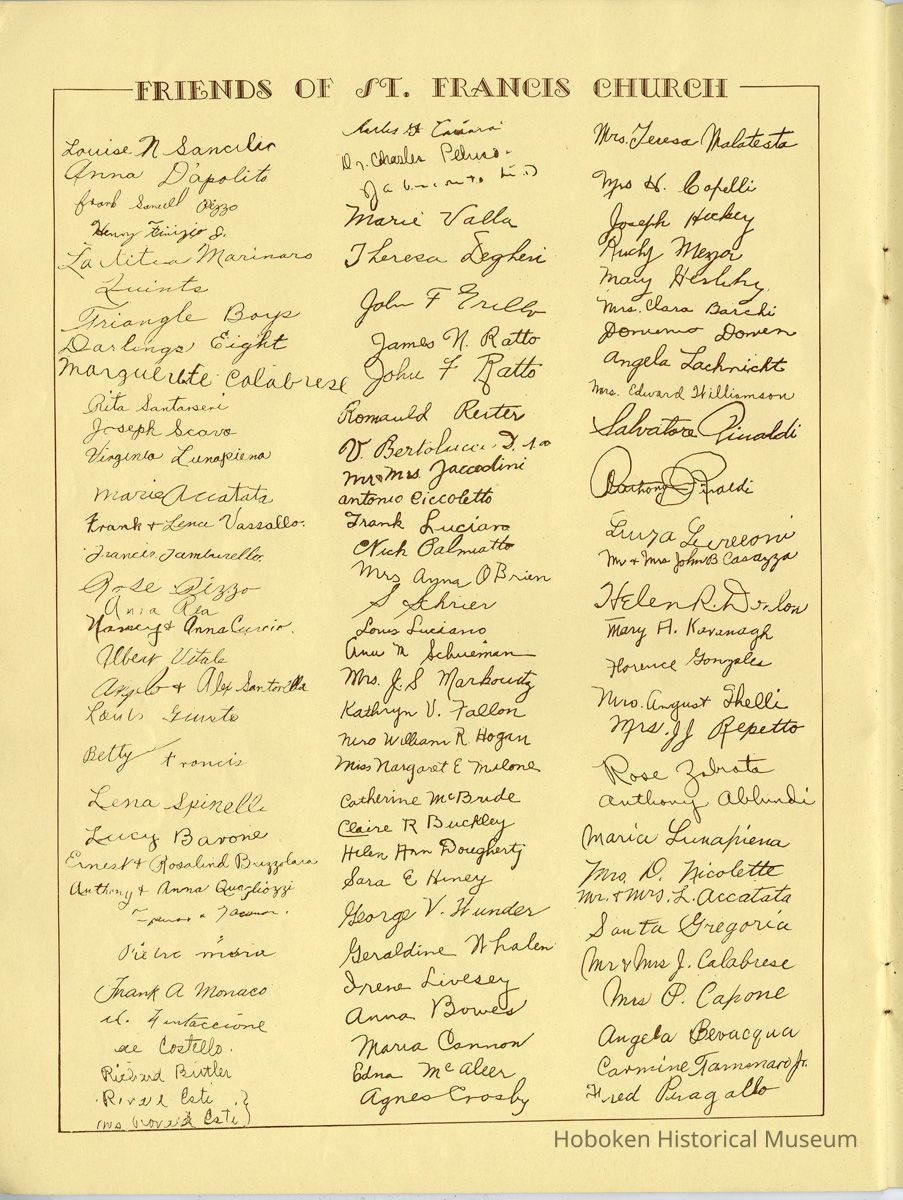 FRIENDS OF ST. FRANCIS CHURCH
Louise N Sancilio
Anna D'apolito
Frank Samuel Pizzo
Henry Finizio Jr.
Laetitia Marinaro
Quints
Triangle Boys
Darlings Eight
Marguerite Calabrese
Rita Santaseri
Joseph Scavo
Virginia Lunapiena
Marie Accatata
Frank & Lena Vassallo.
Francis Tamburello.
Rose Pizzo
Anna Rea
Nancy & Anna Curcio.
Albert Vitale
Angelo & Alex Santorella
Louis Giusto
Betty Francis
Lena Spinelli
Lucy Bavone
Ernest & Rosalind Buzzolara
Anthony & Anna Quagliozzi
Pietro
Frank A Monaco
Costello.
Richard Butler
Esti
Esti
Dr. Charles Peluso.
Marie Valla
Theresa Degheri
John F Grillo
James N. Ratto
John F Ratto
Romauld Reiter
V. Bertolucci
Mr & Mrs. Jaccodini
Antonio Ciccoletto
Frank Luciano
Nick Palmiotto
Mrs Anna O'Brien
S Schrier
Louis Luciano
Ann M Schueman
Mrs. J. S Markowitz
Kathryn V. Fallon
Mrs William R. Hogan
Miss Margaret E Malone
Catherine McBride
Claire R Buckley
Helen Ann Dougherty
Sara E Hiney
George V. Wunder
Geraldine Whalen
Irene Livesey
Anna Bowes
Maria Cannon
Edna McAleer
Agnes Crosby
Mrs. Teresa Malatesta
Mrs H. Capelli
Joseph Hickey
Mary
Mrs. Clara Barchi
Angela Lachnicht
Mrs. Edward Williamson
Salvatore Rinaldi
Anthony Rinaldi
Mr & Mrs John B Casazza
Helen R. Donlon
Mary A. Kavanagh
Florence Gonzales
Mrs. August Ghelli
Mrs. J J Repetto
Rose
Anthony Ablundi
Maria Lunapiena
Mrs. D. Nicolette
Mr. & Mrs. L. Accatata
Santa Gregoria
Mr & Mrs J. Calabrese
Mrs P. Capone
Angela Bevacqua
Carmine Tammaro Jr.
Fred Piragallo
Hoboken Historical Museum